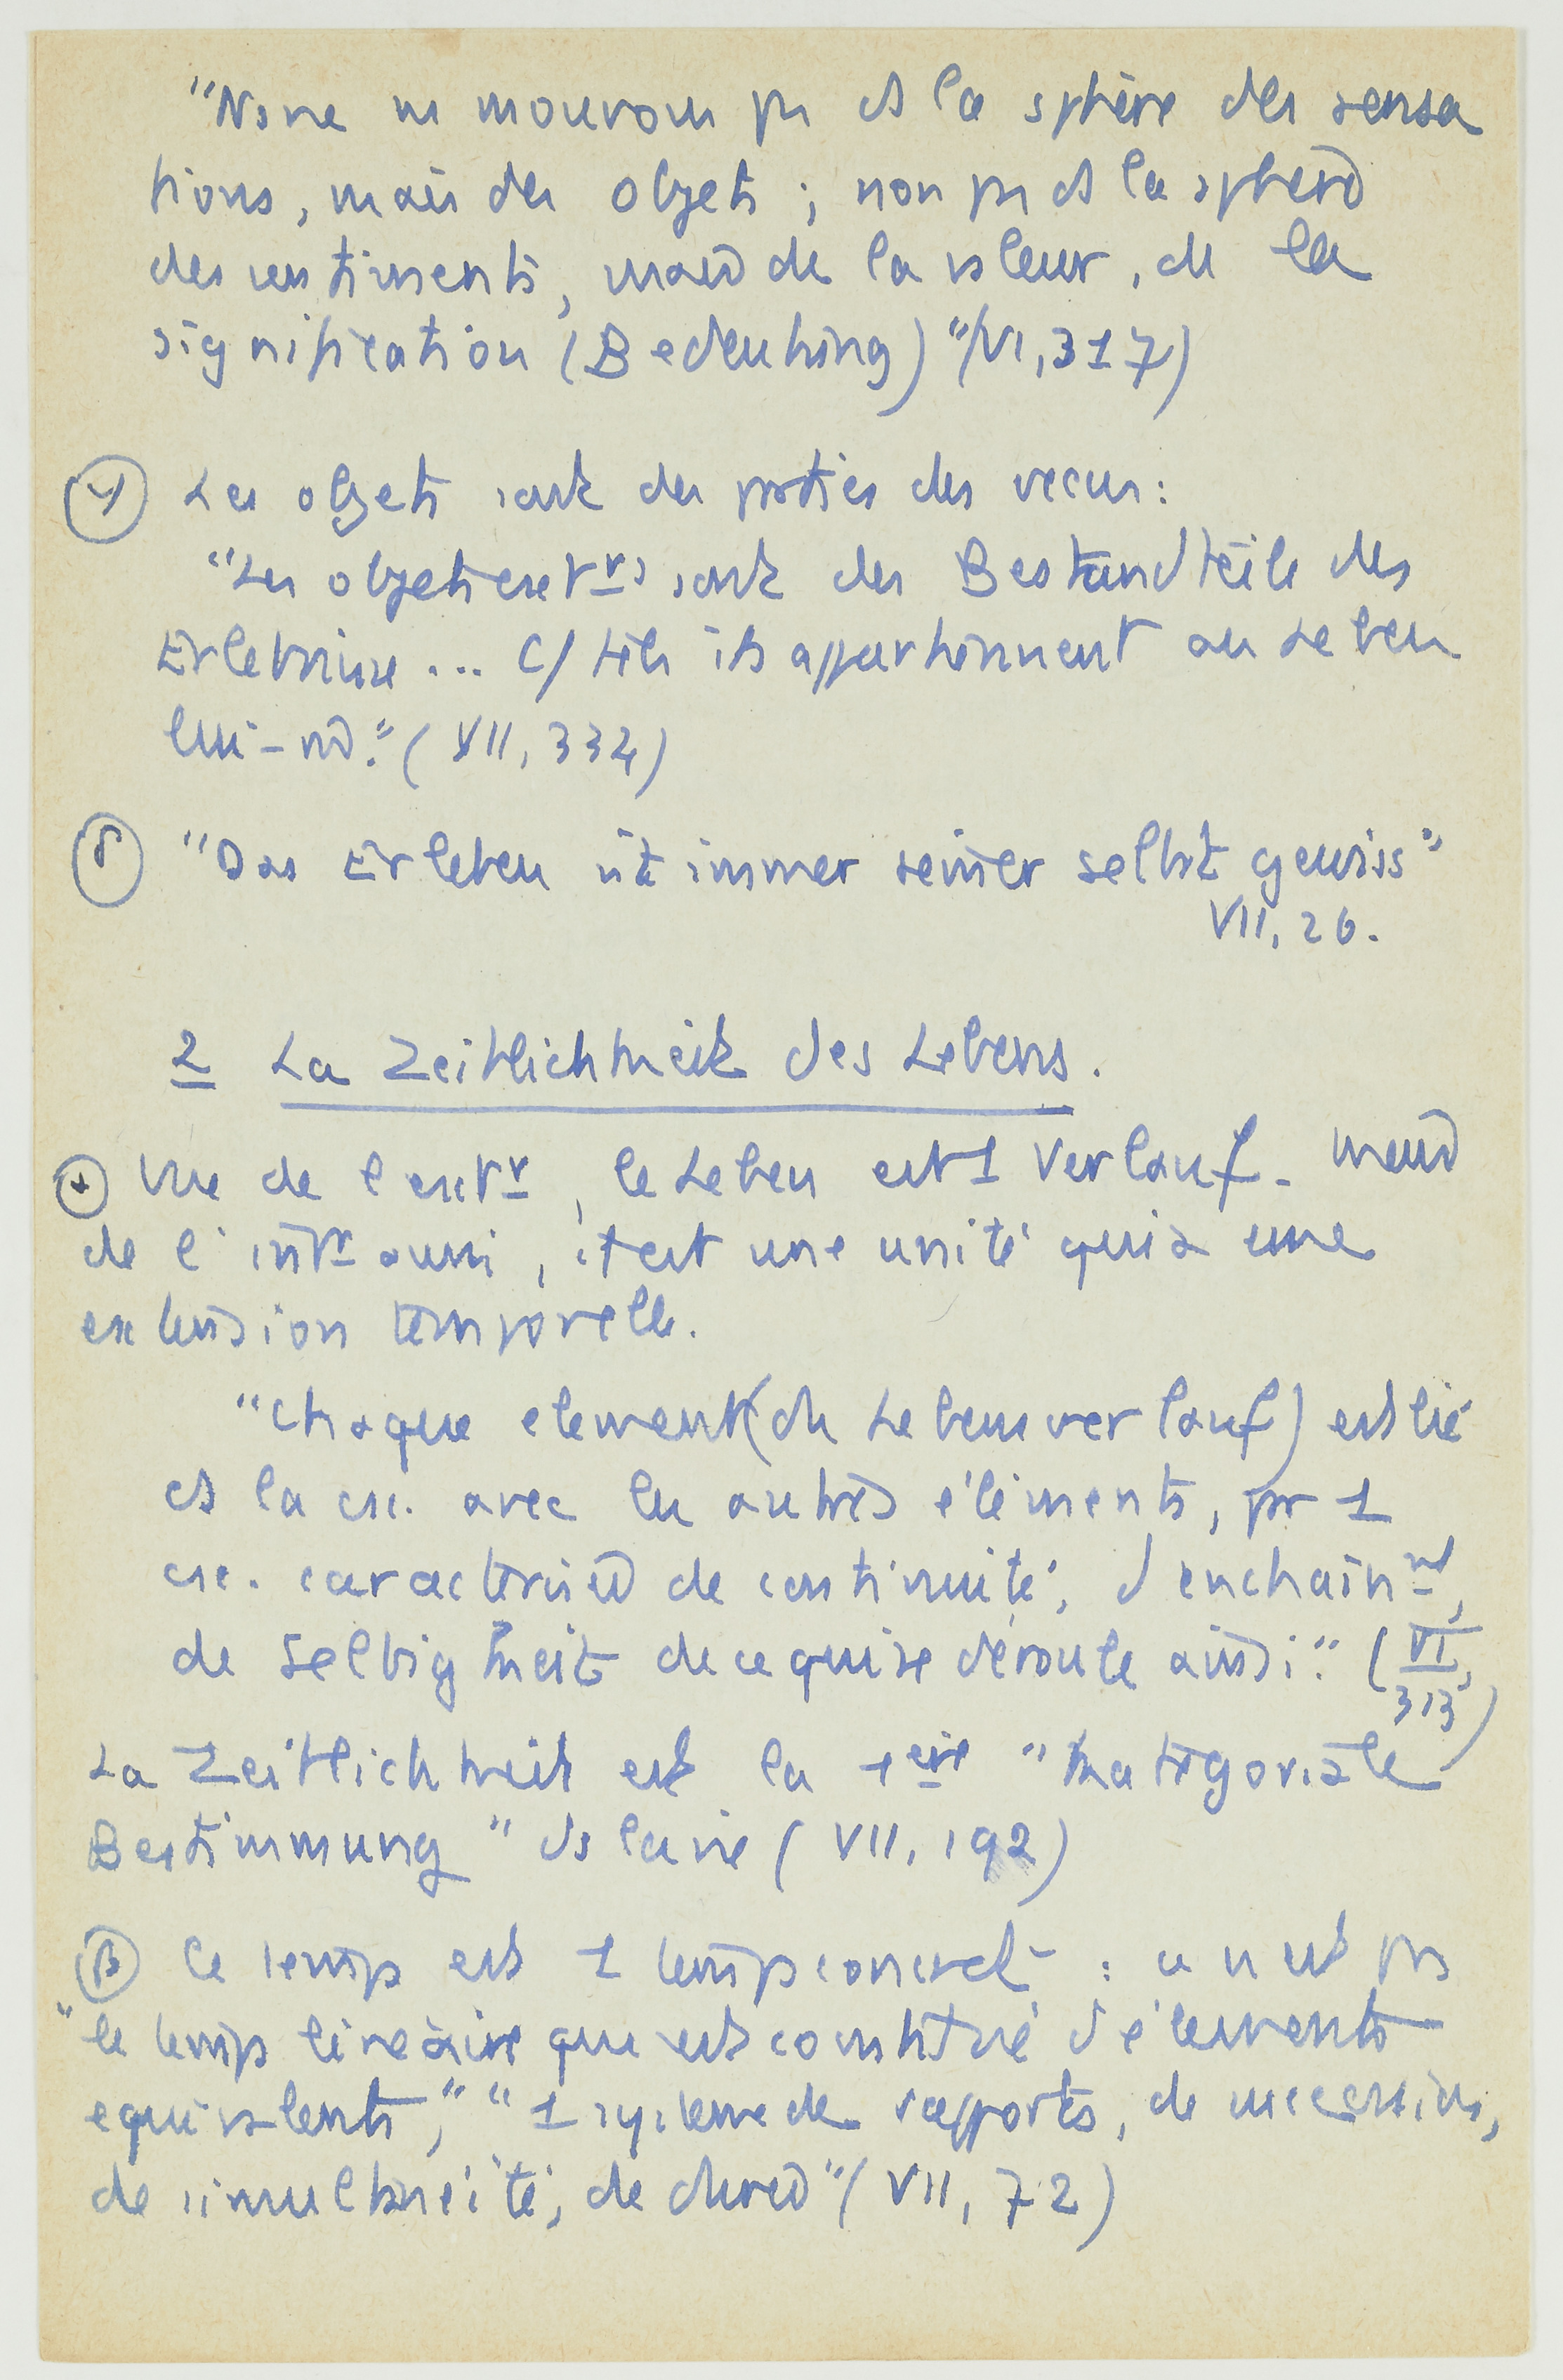 "Nous ne mouvons pas ds la sphère des sensa
tions, mais des objets ; non pas ds la sphère
des sentiments, mais de la valeur, de la
signification (Bedeutung)" (VI, 317)
γ Les objets sont des parties des vécus :
"Les objets extrs sont des Bestandteile des
Erlebnisse ... C/ tels ils appartiennent au Leben
lui-m." (VII, 334)
δ "Das Erleben ist immer seiner selbst gewiss"
VII, 26.
2 La Zeitlichkeit des Lebens.
α Vue de l'extr, le Leben est 1 Verlauf. Mais
de l'intr aussi, il est une unité qui a une
extension temporelle.
"Chaque element (du Lebensverlauf) est lié
ds la csc. avec les autres éléments, par 1
csc. caractérisée de continuité, d'enchainmt,
de Selbigkeit de ce qui se déroule ainsi." (VI, 313)
La Zeitlichkeit est la 1ere "kategoriale
Bestimmung" ds la vie (VII, 192)
β Ce temps est 1 temps concret : ce n'est pas
"le temps linéaire qui est constitué d'éléments
equivalents," "1 système de rapports, de succession,
de simultanéité, de durée" (VII, 72)